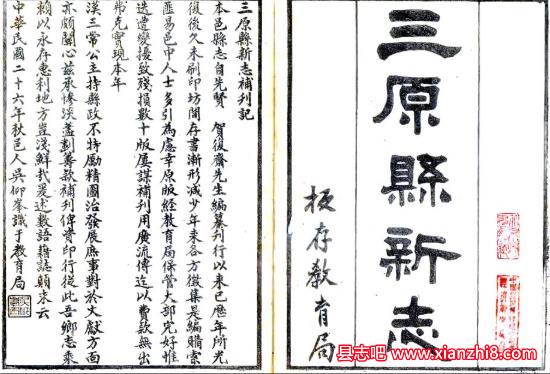 三原縣新志
板存教育局
三原縣新志補刊記
本邑縣志自先賢 賀復齋先生編纂刊行以來已歷年所光
復後久未刷印坊間存書漸形減少年來各方徵集是編購索
匪易邑中人士多引為慮幸原版經教育局保管大部完好惟
迭遭變擾致殘損數十版屢謀補刊用廣流傳迄以費款無出
弗克實現本年
漢三常公主持縣政不特勵精圖治發展庶事對於文獻方面
亦頗關心茲承慘淡畫籌款補刊俾資印行從此吾鄉志乘
賴以永存惠利地方豈淺鮮哉爰述數語藉誌顛末云
中華民國二十六年秋邑人吳仰峯識于教育局
县志吧
www.xianzhi8.com